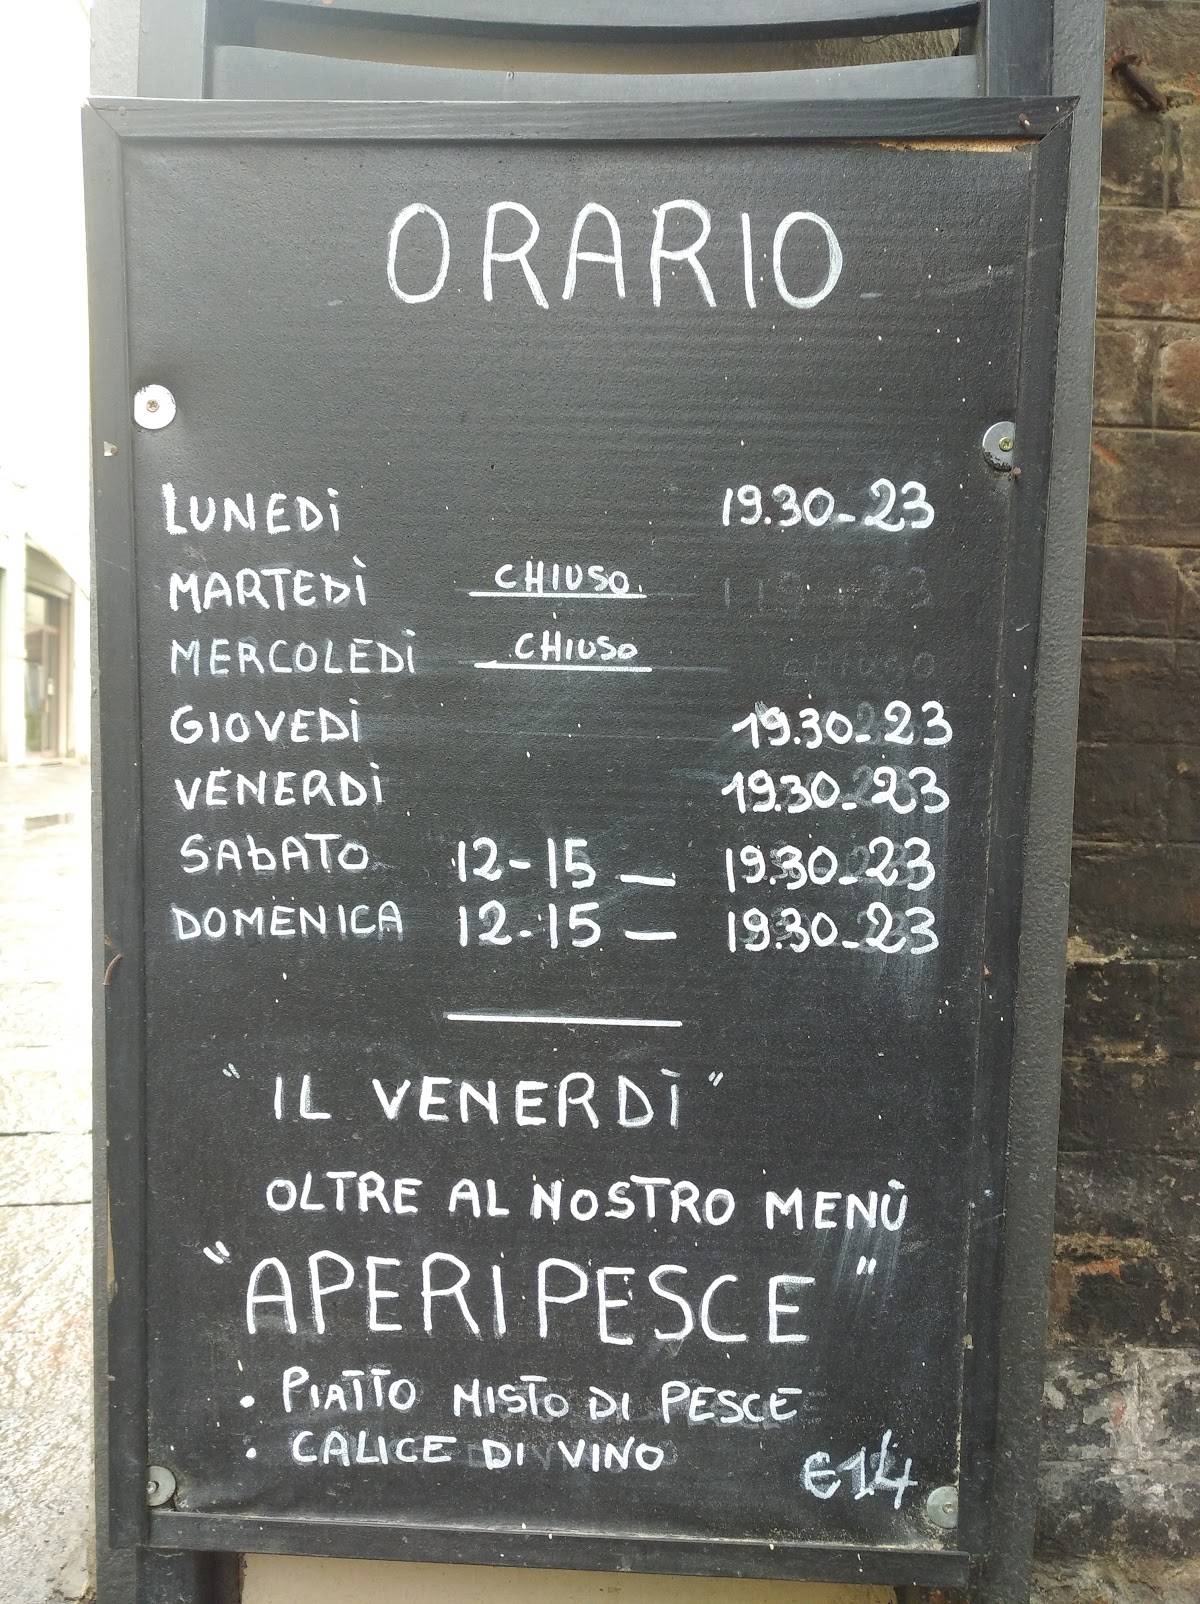 ORARIO
LUNEDÌ 19.30-23
MARTEDÌ CHIUSO
MERCOLEDÌ CHIUSO
GIOVEDÌ 19.30-23
VENERDÌ 19.30-23
SABATO 12-15 — 19.30-23
DOMENICA 12-15 — 19.30-23
"IL VENERDÌ"
OLTRE AL NOSTRO MENÙ
"APERIPESCE"
• PIATTO MISTO DI PESCE
• CALICE DI VINO €14